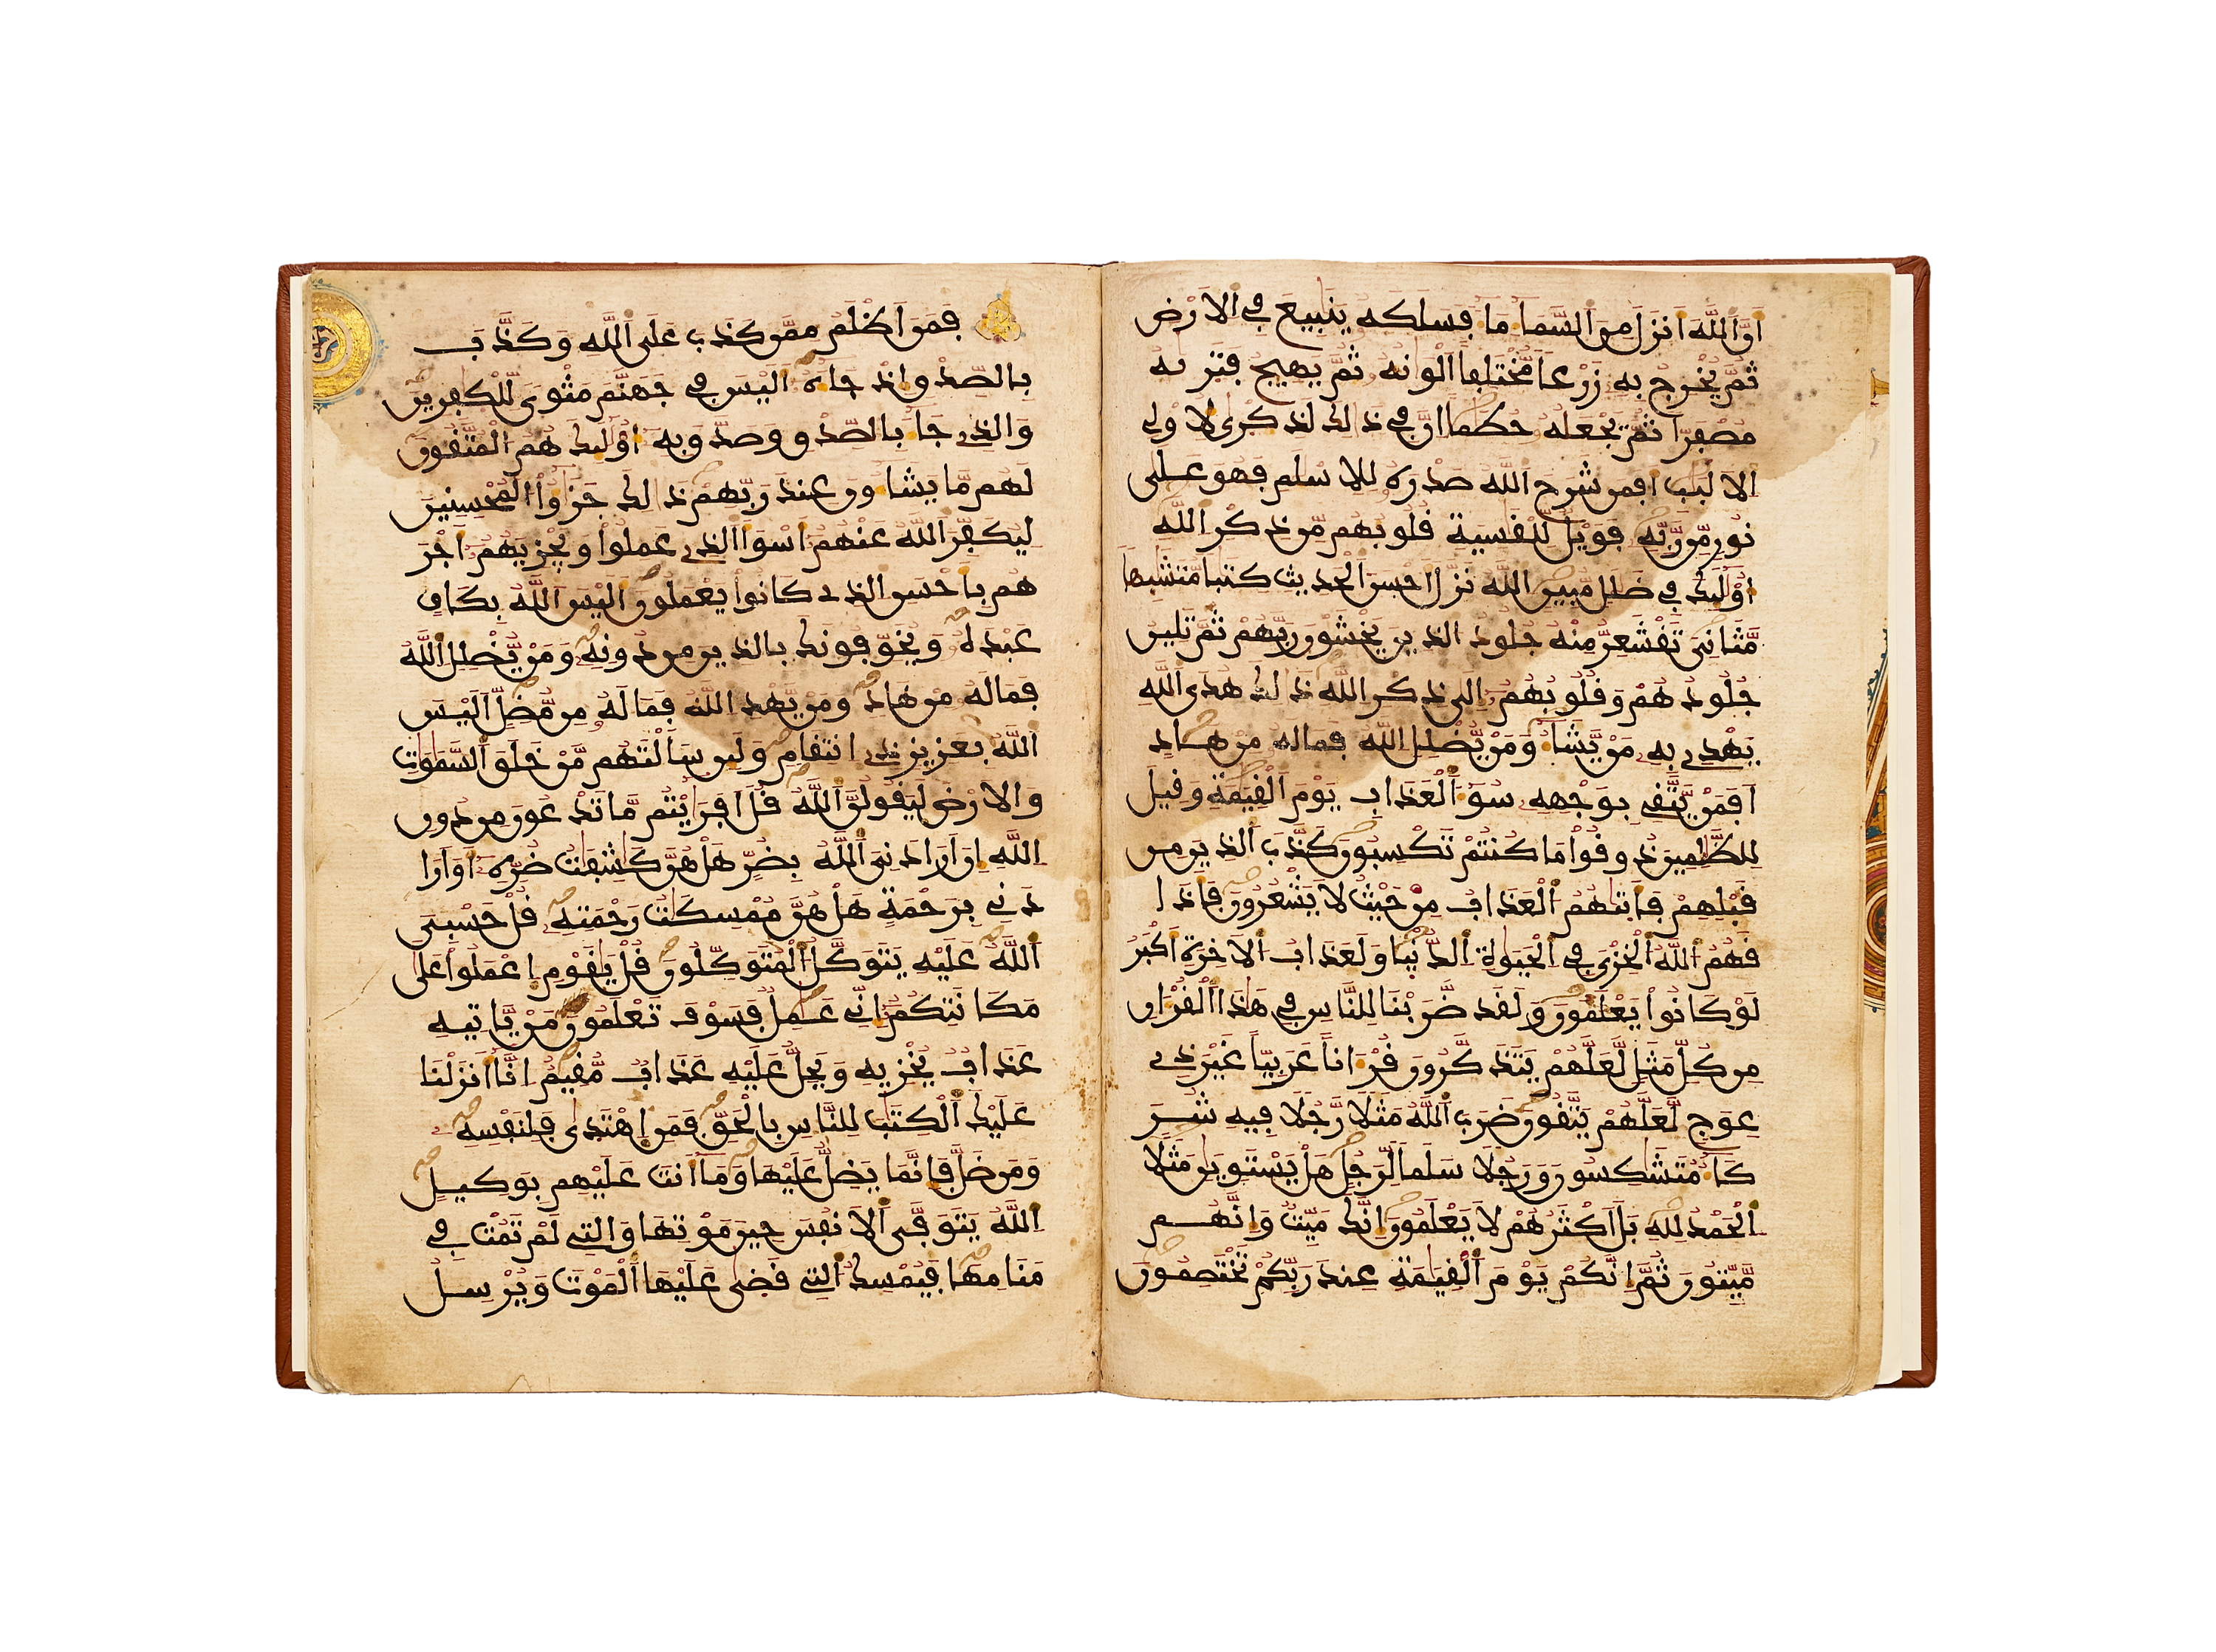 ان الله انزل من السما ما فسلكه ينبيع في الارض
ثم يخرج به زرعا مختلفا الوانه ثم يهيج فتريه
مصفرا ثم يجعله حطما ان في ذلك لذكرى لاولي
الالبب افمن شرح الله صدره للاسلم فهو على
نور من ربه فويل للقسية قلوبهم من ذكر الله
اوليك في ضلل مبين الله نزل احسن الحديث كتبا متشبها
مثاني تقشعر منه جلود الذين يخشون ربهم ثم تلين
جلودهم وقلوبهم الى ذكر الله ذلك هدى الله
يهدي به من يشا ومن يضلل الله فماله من هاد
افمن يتقي بوجهه سو العذاب يوم القيمة وقيل
للظلمين ذوقوا ما كنتم تكسبون كذب الذين من
قبلهم فاتيهم العذاب من حيث لا يشعرون فاذا
قهم الله الخزي في الحيوة الدنيا ولعذاب الاخرة اكبر
لو كانوا يعلمون ولقد ضربنا للناس في هذا القران
من كل مثل لعلهم يتذكرون قرانا عربيا غير ذي
عوج لعلهم يتقون ضرب الله مثلا رجلا فيه شر
كا متشكسون ورجلا سلما لرجل هل يستوين مثلا
الحمد لله بل اكثرهم لا يعلمون انك ميت وانهم
ميتون ثم انكم يوم القيمة عند ربكم تختصمون
فمن اظلم ممن كذب على الله وكذب
بالصدق اذ جاه اليس في جهنم مثوى للكفرين
والذي جا بالصدق وصدق به اوليك هم المتقون
لهم ما يشاون عند ربهم ذلك جزوا المحسنين
ليكفر الله عنهم اسوا الذي عملوا ويجزيهم اجر
هم باحسن الذي كانوا يعملون اليس الله بكاف
عبده ويخوفونك بالذين من دونه ومن يضلل الله
فماله من هاد ومن يهد الله فماله من مضل اليس
الله بعزيز ذي انتقام ولين سالتهم من خلق السموت
والارض ليقولن الله قل افريتم ما تدعون من دون
الله ان ارادني الله بضر هل هن كشفت ضره او ارا
دني برحمة هل هن ممسكت رحمته قل حسبي
الله عليه يتوكل المتوكلون قل يقوم اعملوا على
مكانتكم اني عمل فسوف تعلمون من ياتيه
عذاب يخزيه ويحل عليه عذاب مقيم انا انزلنا
عليك الكتب للناس بالحق فمن اهتدى فلنفسه
ومن ضل فانما يضل عليها وما انت عليهم بوكيل
الله يتوفى الانفس حين موتها والتي لم تمت في
منامها فيمسك التي قضى عليها الموت ويرسل